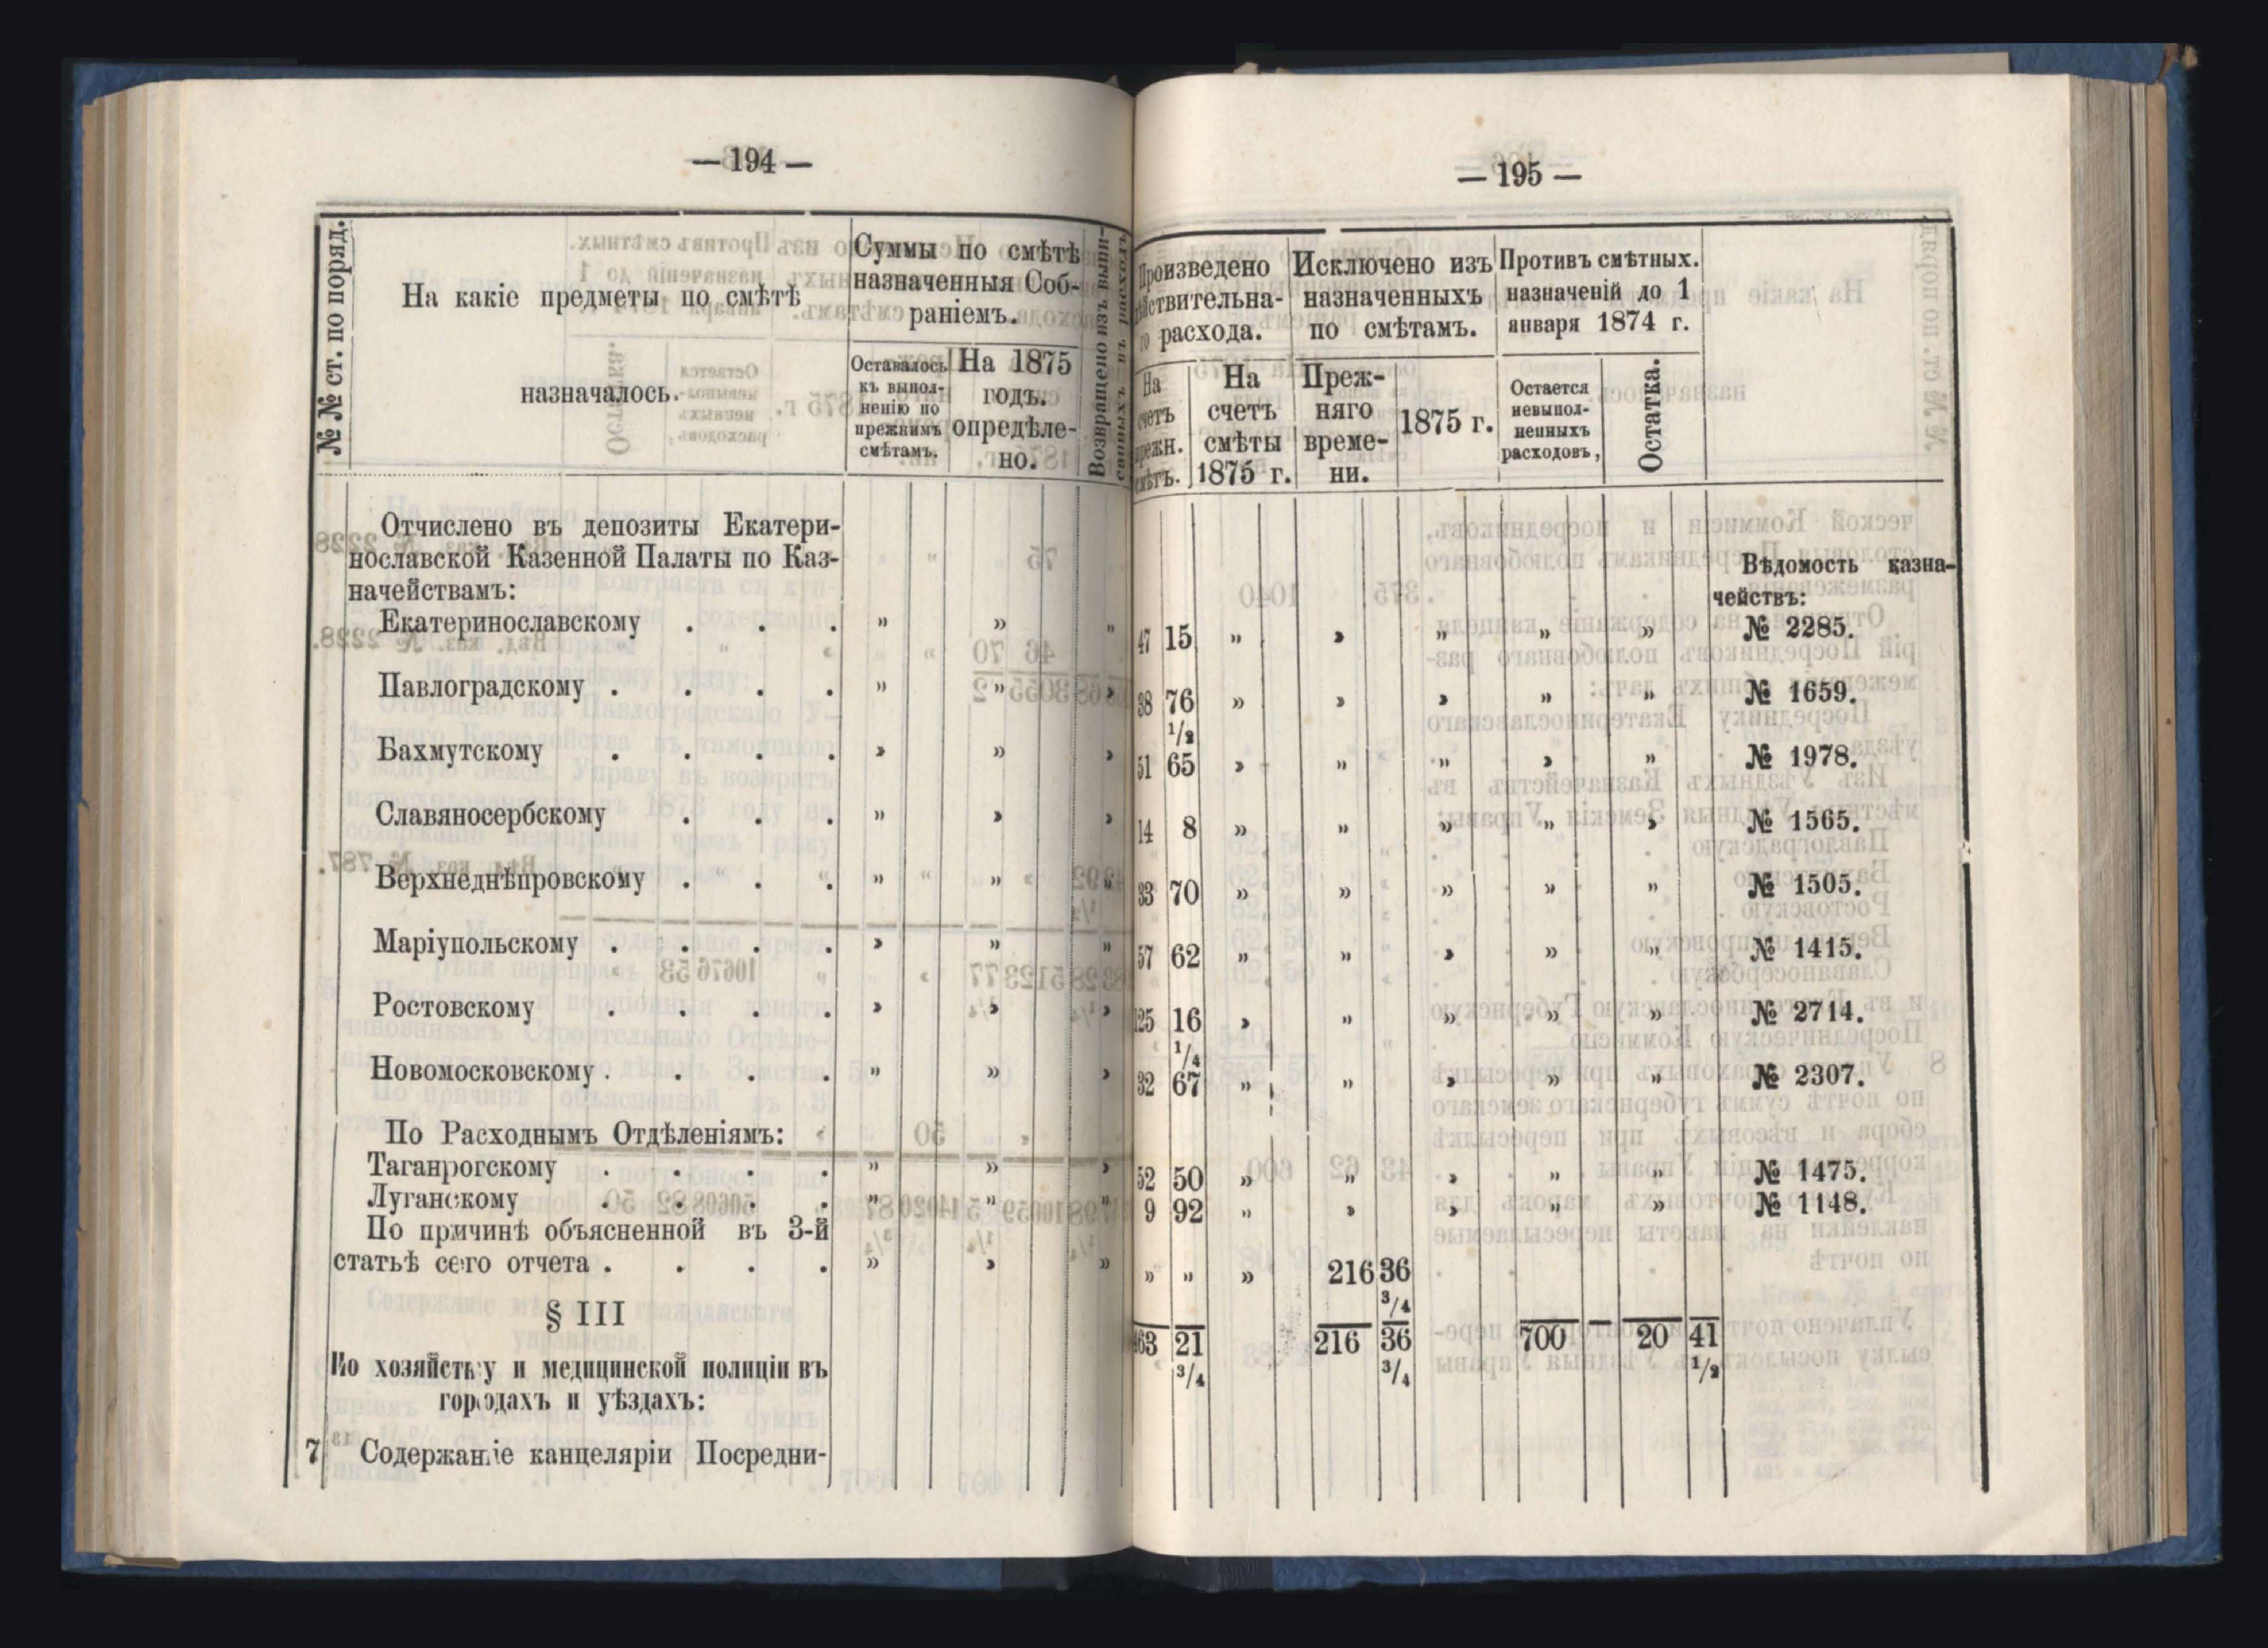 — 194 —
№ № ст. по поряд.
На какіе предметы по смѣтѣ
назначалось.
Суммы по смѣтѣ
назначенныя Соб-
раніемъ.
Оставалось
къ выпол-
ненію по
прежнимъ
смѣтамъ.
На 1875
годъ.
опредѣле-
но.
Возвращено изъ выпи-
въ расходъ
Отчислено въ депозиты Екатери-
нославской Казенной Палаты по Каз-
начействамъ:
Екатеринославскому . . . „ „ „
Павлоградскому . . . . „ „ „
Бахмутскому . . . . „ „ „
Славяносербскому . . . „ „ „
Верхнеднѣпровскому . . . „ „ „
Маріупольскому . . . . „ „ „
Ростовскому . . . . „ „ „
Новомосковскому . . . . „ „ „
По Расходнымъ Отдѣленіямъ:
Таганрогскому . . . . „ „ „
Луганскому . . . . „ „ „
По причинѣ объясненной въ 3-й
статьѣ сего отчета . . . . „ „ „
§ III
По хозяйству и медицинской полиціи въ
городахъ и уѣздахъ:
7 Содержаніе канцеляріи Посредни-
— 195 —
Произведено
расхода.
Исключено изъ
назначенныхъ
по смѣтамъ.
Противъ смѣтных.
назначеній до 1
января 1874 г.
На
счетъ
прежн.
смѣтъ.
На
счетъ
смѣты
1875 г.
Преж-
няго
време-
ни.
1875 г.
Остается
невыпол-
ненныхъ
расходовъ,
Остатка.
Вѣдомость казна-
чействъ:
47 15 „ „ „ „ „ № 2285.
38 76 „ „ „ „ „ № 1659.
1/2
51 65 „ „ „ „ „ № 1978.
14 8 „ „ „ „ „ № 1565.
33 70 „ „ „ „ „ № 1505.
57 62 „ „ „ „ „ № 1415.
125 16 „ „ „ „ „ № 2714.
1/4
32 67 „ „ „ „ „ № 2307.
52 50 „ „ „ „ „ № 1475.
9 92 „ „ „ „ „ № 1148.
„ „ „ 216 36
3/4
463 21 216 36 700 — 20 41
3/4 3/4 1/2